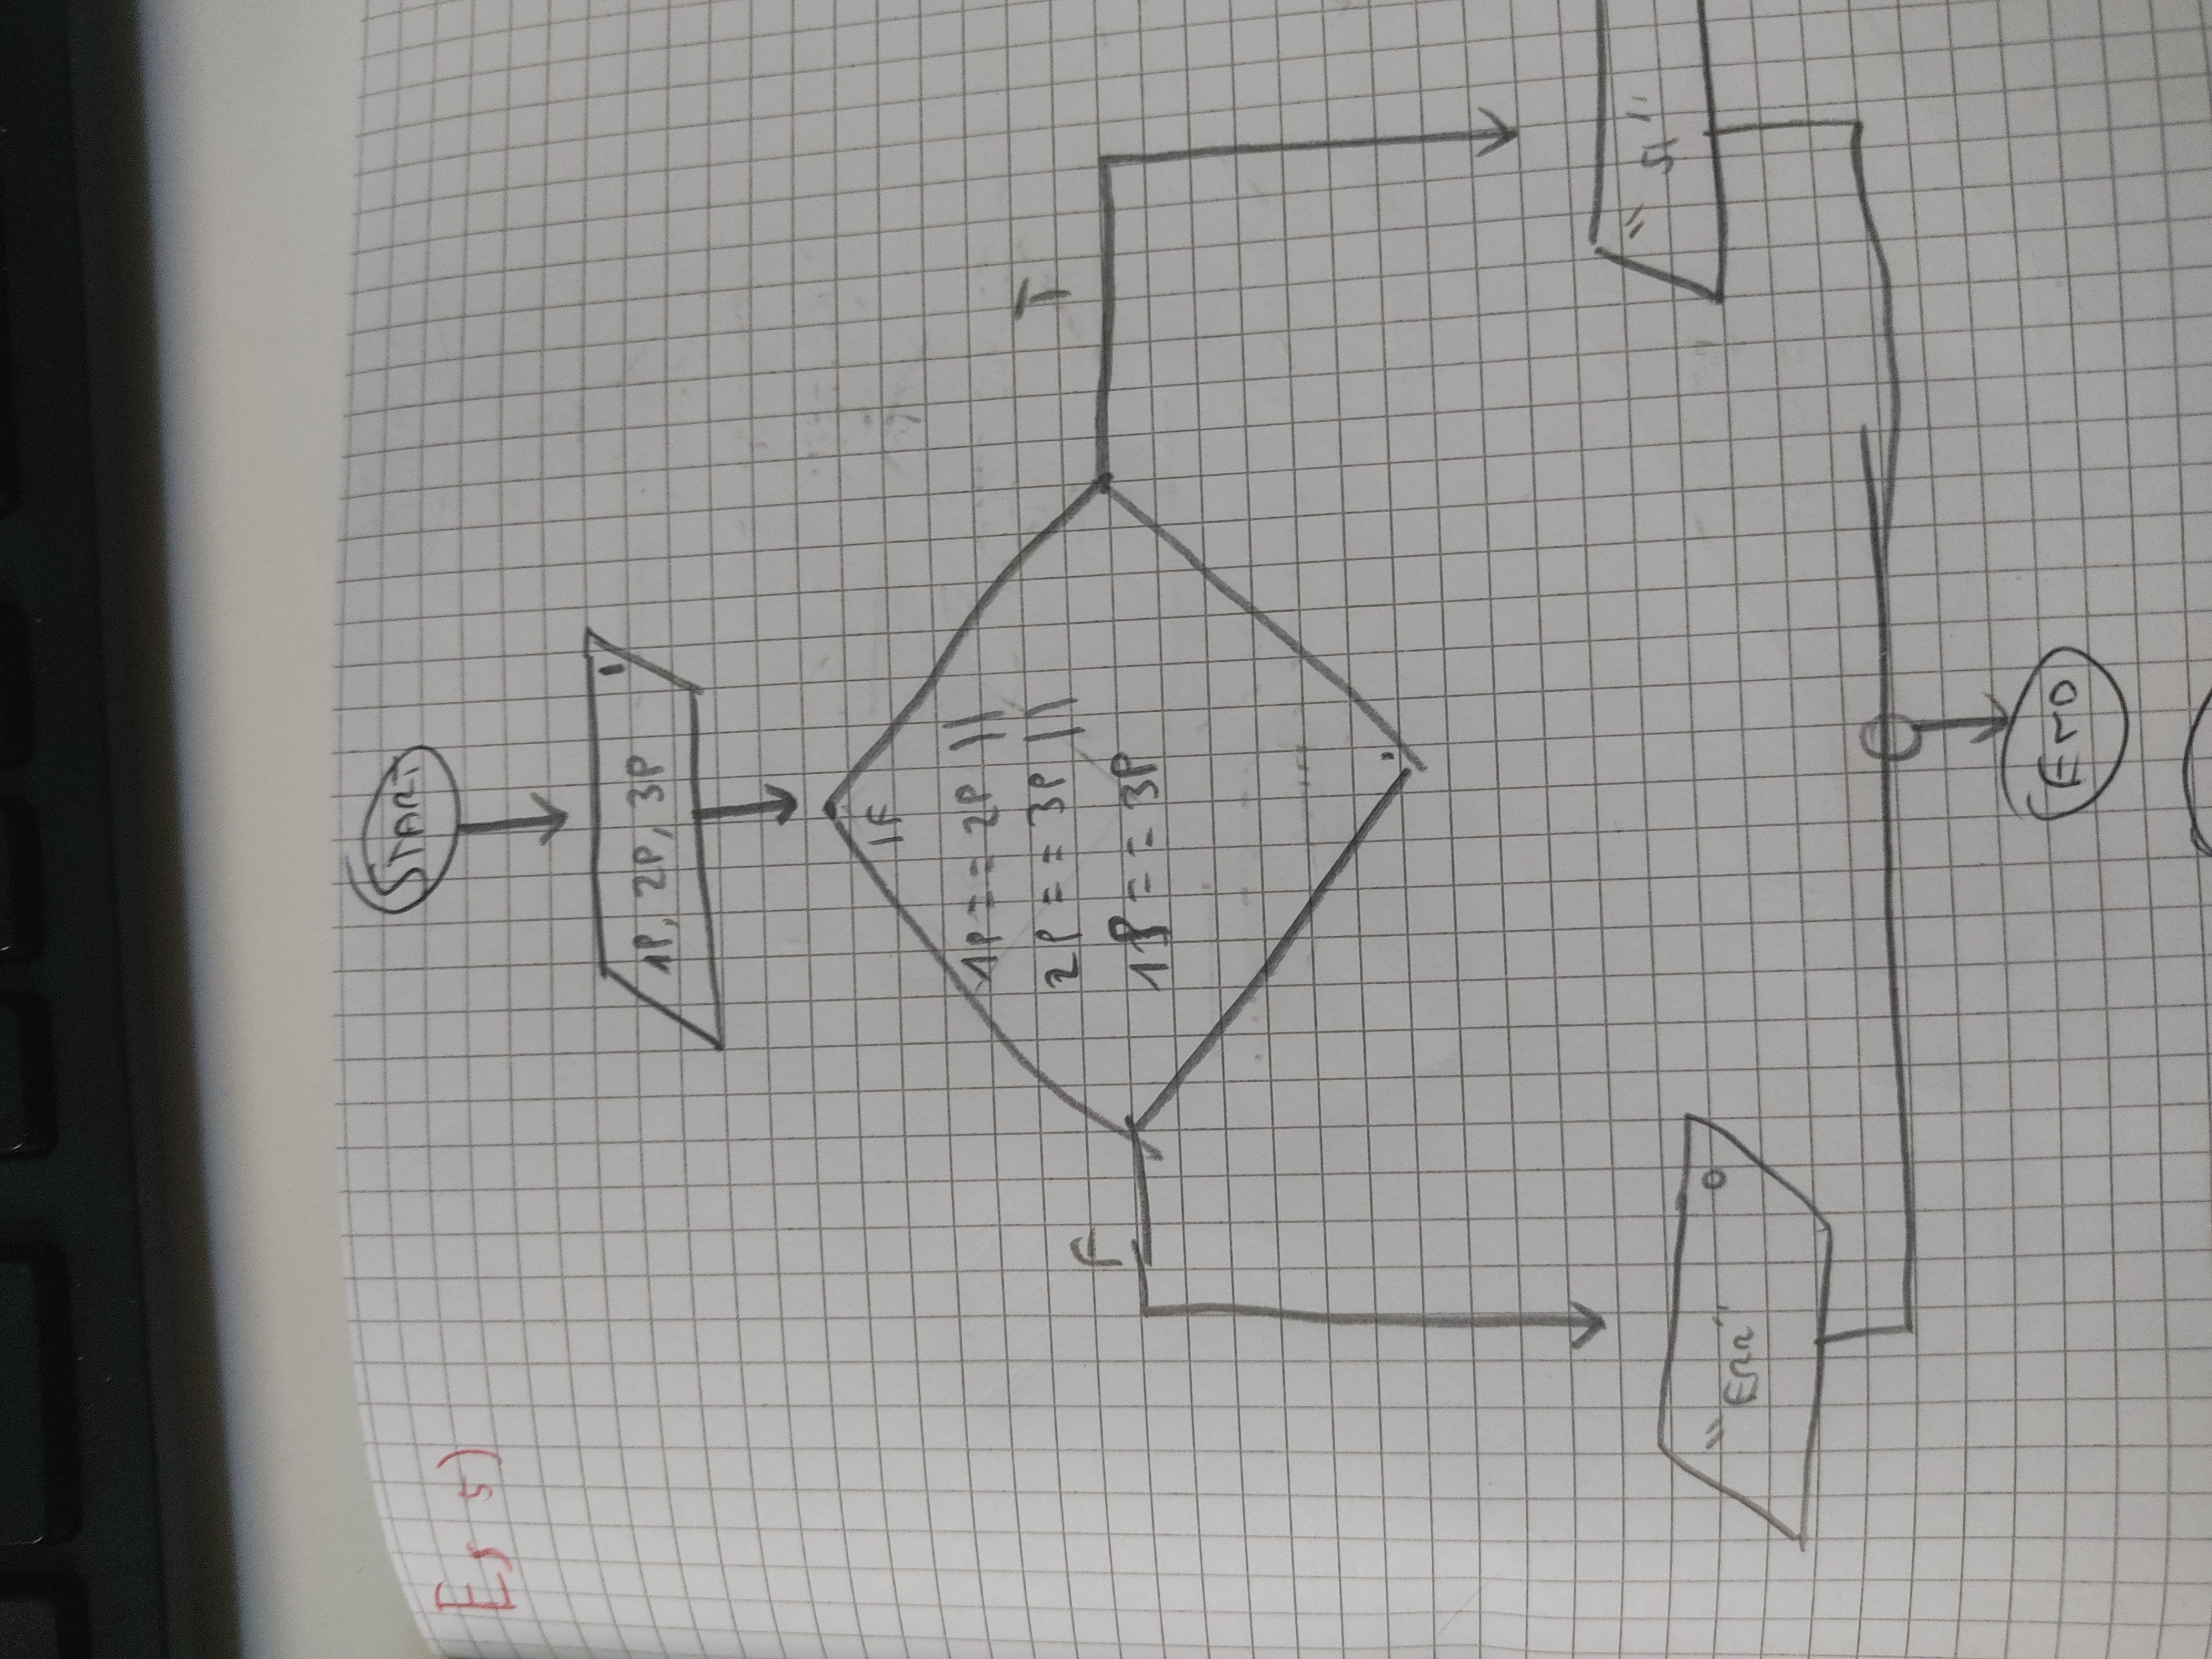 Es 5)
START
1P, 2P, 3P I
IF
1P == 2P ||
2P == 3P ||
1P == 3P
F
T
"Err" O
"Si"
END